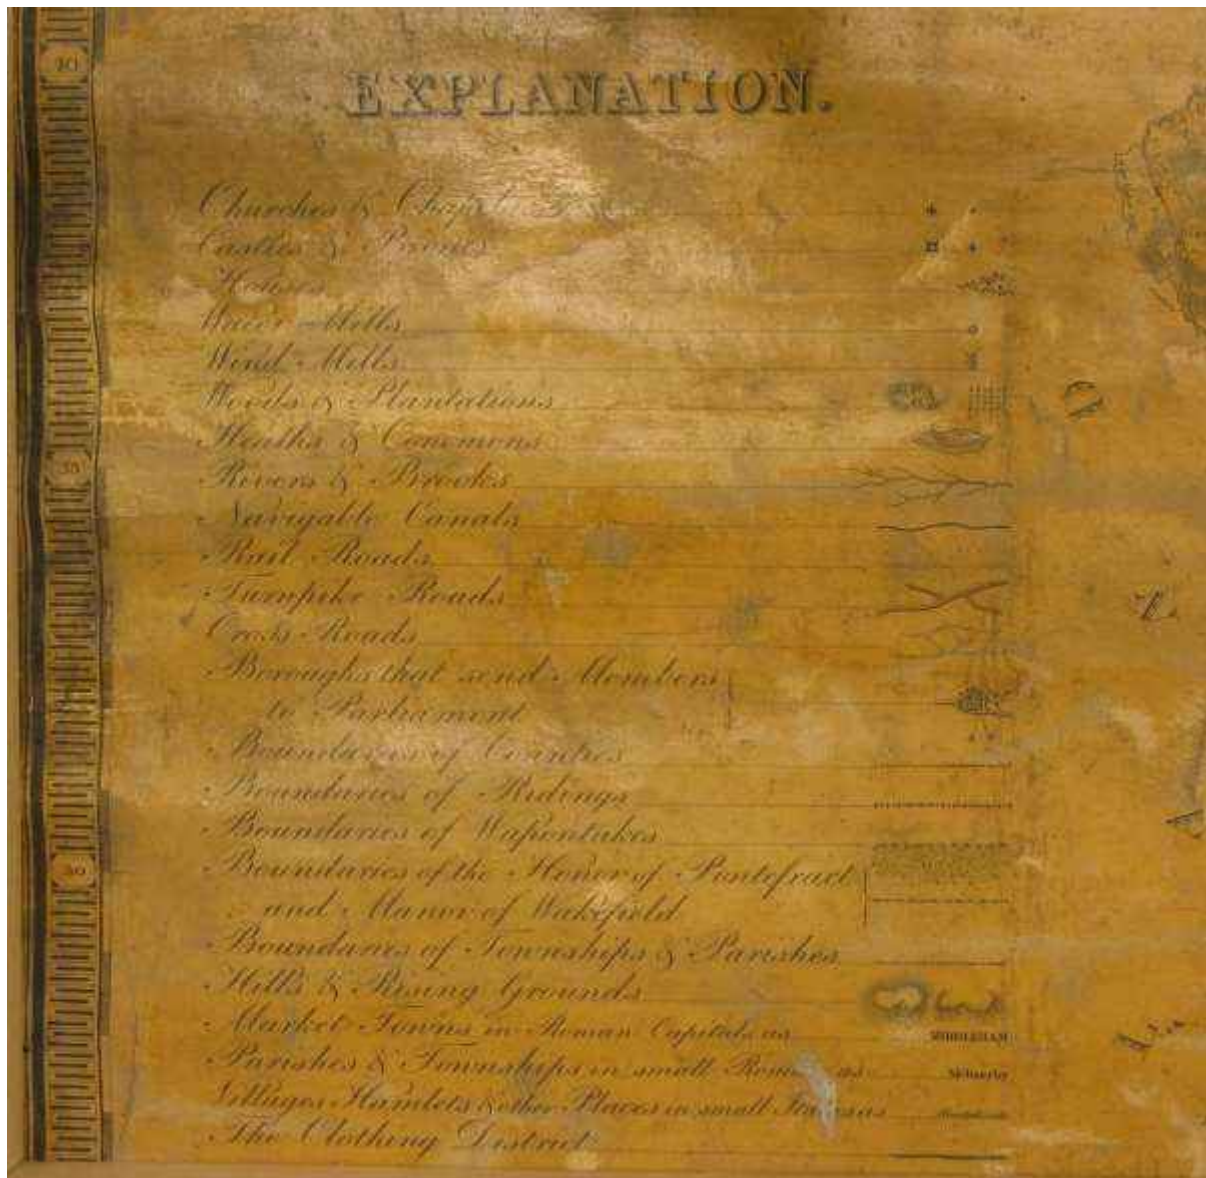 40
EXPLANATION.
Churches & Chapels
Castles & Priories
Houses
Water Mills
Wind Mills
Woods & Plantations
Heaths & Commons
Rivers & Brooks
Navigable Canals
35
Rail Roads
Turnpike Roads
Cross Roads
Boroughs that send Members
to Parliament
Boundaries of Counties
Boundaries of Ridings
Boundaries of Wapontakes
30
Boundaries of the Honor of Pontefract
and Manor of Wakefield
Boundaries of Townships & Parishes
Hills & Rising Grounds
Market Towns in Roman Capitals as MIDDLEHAM
Parishes & Townships in small Roman as
Villages Hamlets & other Places in small Italics as
The Clothing District